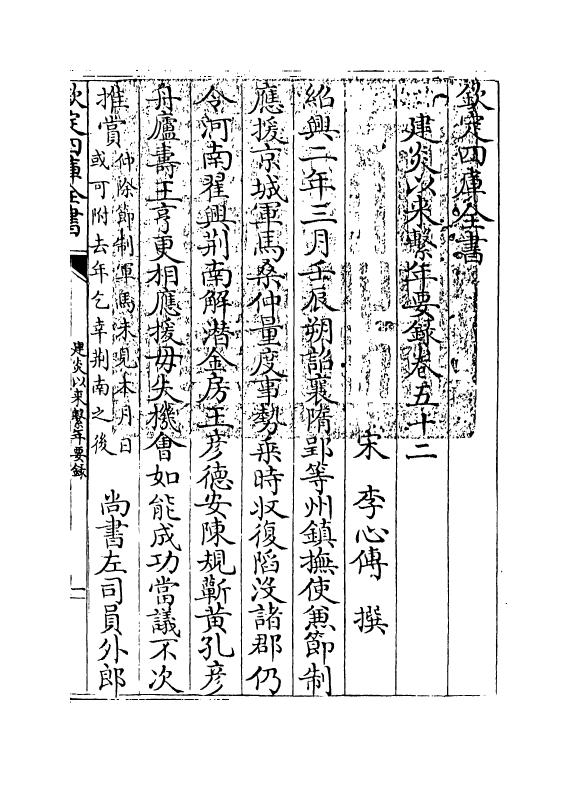 欽定四庫全書
建炎以来繫年要録卷五十二
宋 李心傳 撰
紹興二年三月壬辰朔詔襄隋郢等州鎮撫使兼節制
應援京城軍馬桑仲量度事勢乗時收復䧟沒諸郡仍
令河南翟興荆南解潛金房王彦德安陳規蘄黄孔彦
舟廬壽王亨更相應援毋失機會如能成功當議不次
推賞仲除節制軍馬未見本月日
或可附去年乞幸荆南之後
尚書左司員外郎
欽定四庫全書
建炎以来繫年要録
一